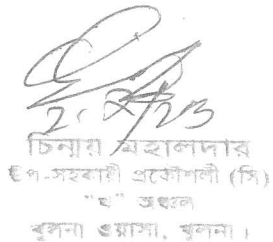 2.8/23
চিন্ময় মহালদার
উপ-সহকারী প্রকৌশলী (সি)
"খ" অঞ্চল
খুলনা ওয়াসা, খুলনা।